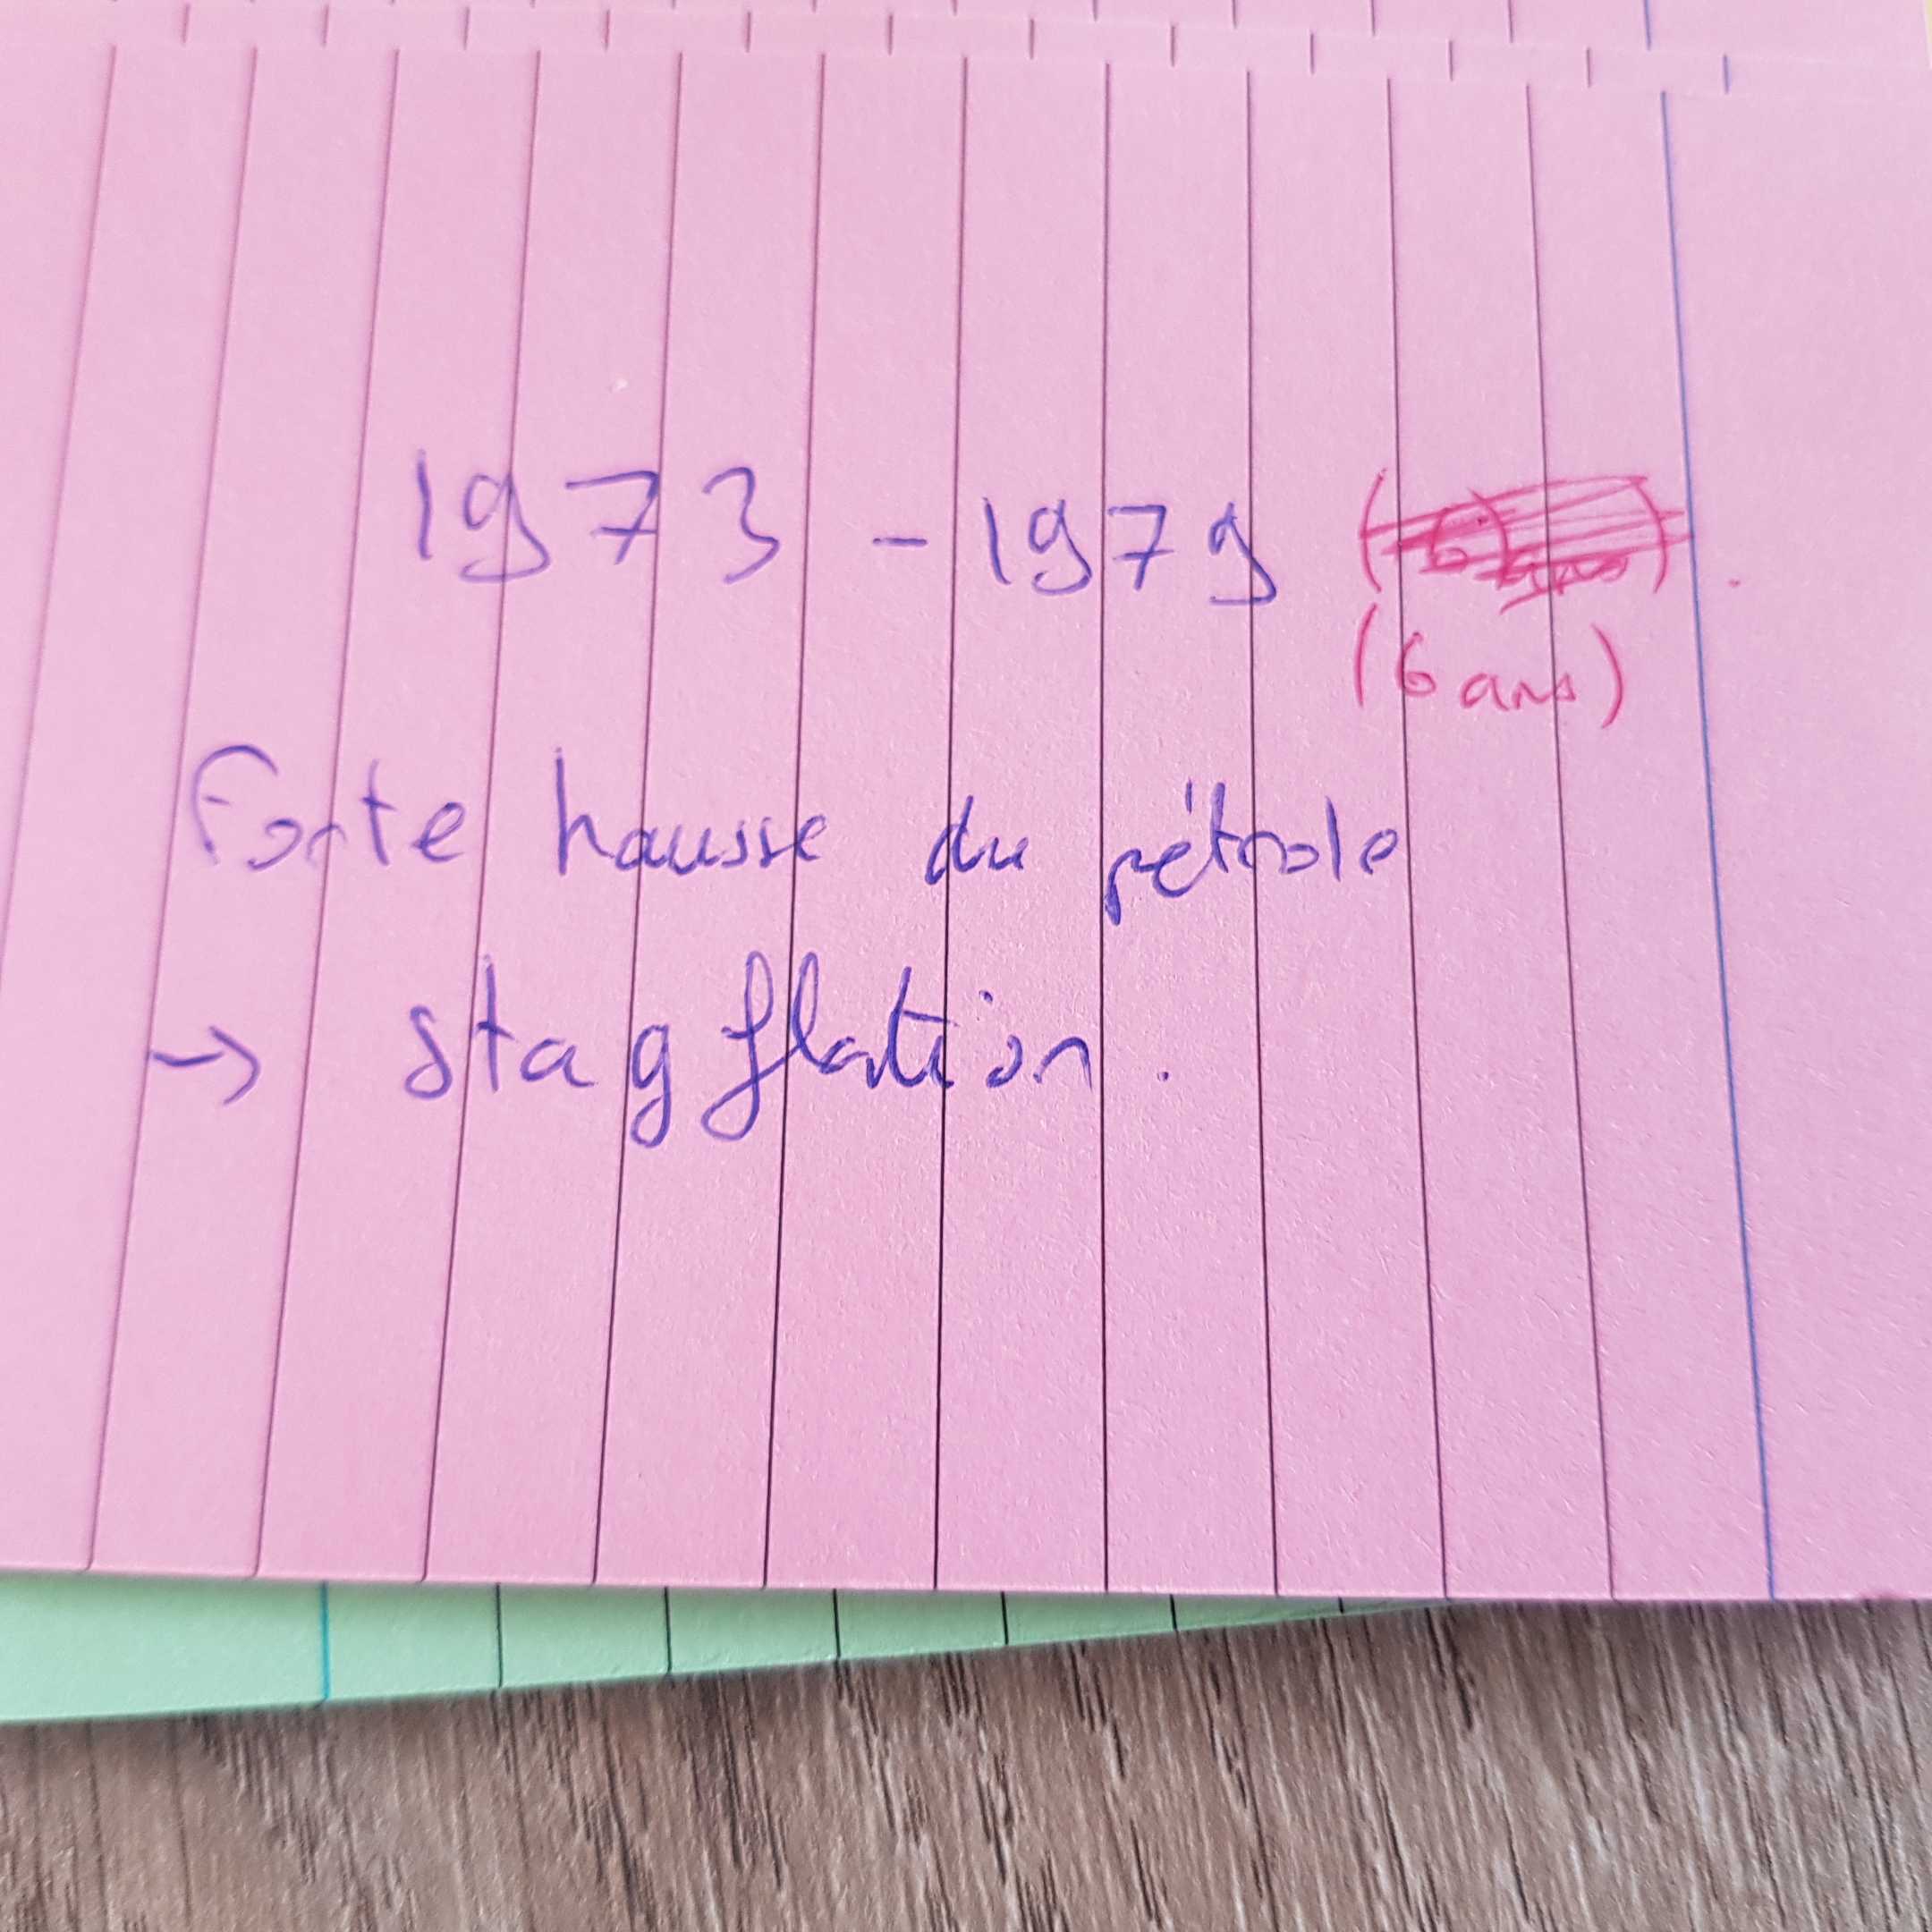 1973 - 1979
(6 ans)
Forte hausse du pétrole
→ stagflation.